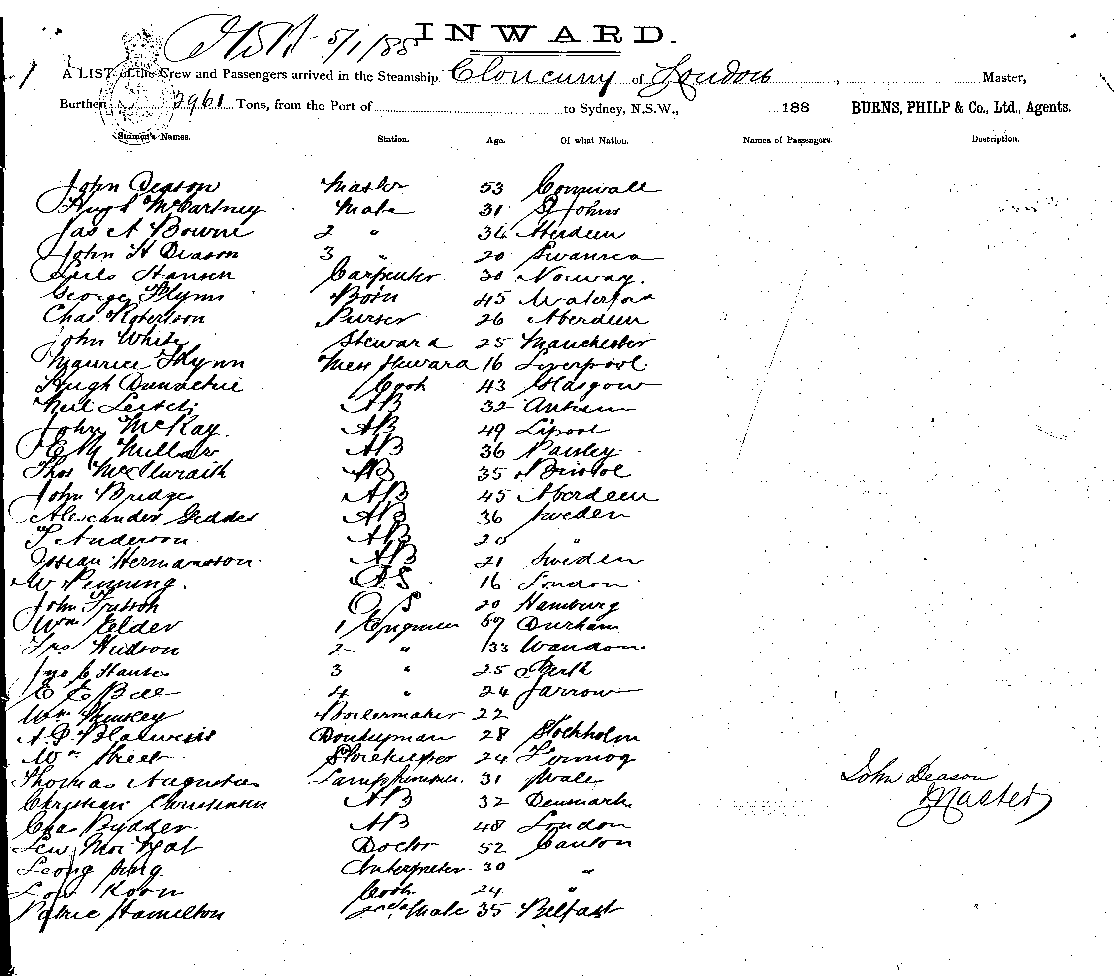 5/1/88 INWARD.
A LIST of the Crew and Passengers arrived in the Steamship Cloncurry of London , Master,
Burthen 2961 Tons, from the Port of to Sydney, N.S.W., 188 BURNS, PHILP & Co., Ltd., Agents.
Seamen's Names. Station. Age. Of what Nation. Names of Passengers. Description.
John Deason Master 53 Cornwall
Hugh McCartney Mate 31 St Johns
Jas A Bowne 2 " 34 Aberdeen
John H Deason 3 " 20 Swansea
Hansen Carpenter 30 Norway
George Flynn Bosn 45 Waterford
Chas Robertson Purser 26 Aberdeen
John White Steward 25 Manchester
Maurice Flynn Mess Steward 16 Liverpool
Hugh Cook 43 Glasgow
Neil Leitch AB 32 Antrim
John McKay AB 49 Lpool
Millar AB 36 Paisley
Thos McIlwraith AB 35 Bristol
John Bridge AB 45 Aberdeen
Alexander Geddes AB 36 Sweden
T Anderson AB 20 "
Hermansson AB 21 Sweden
W Penning OS 16 London
John OS 20 Hamburg
Wm Elder 1 Engineer Durham
Hudson 2 " 33
3 " 25 Perth
4 " 24 Jarrow
Wm Boilermaker 22
Donkeyman 28 Stockholm
Wm Street Storekeeper 24
Thomas Augustus Lamptrimmer 31
Christian Christensen AB 32 Denmark
Chas AB 48 London
Doctor 52 Canton
Leong Interpreter 30 "
Koon Cook 24 "
Hamilton 2nd Mate 35 Belfast
John Deason
Master